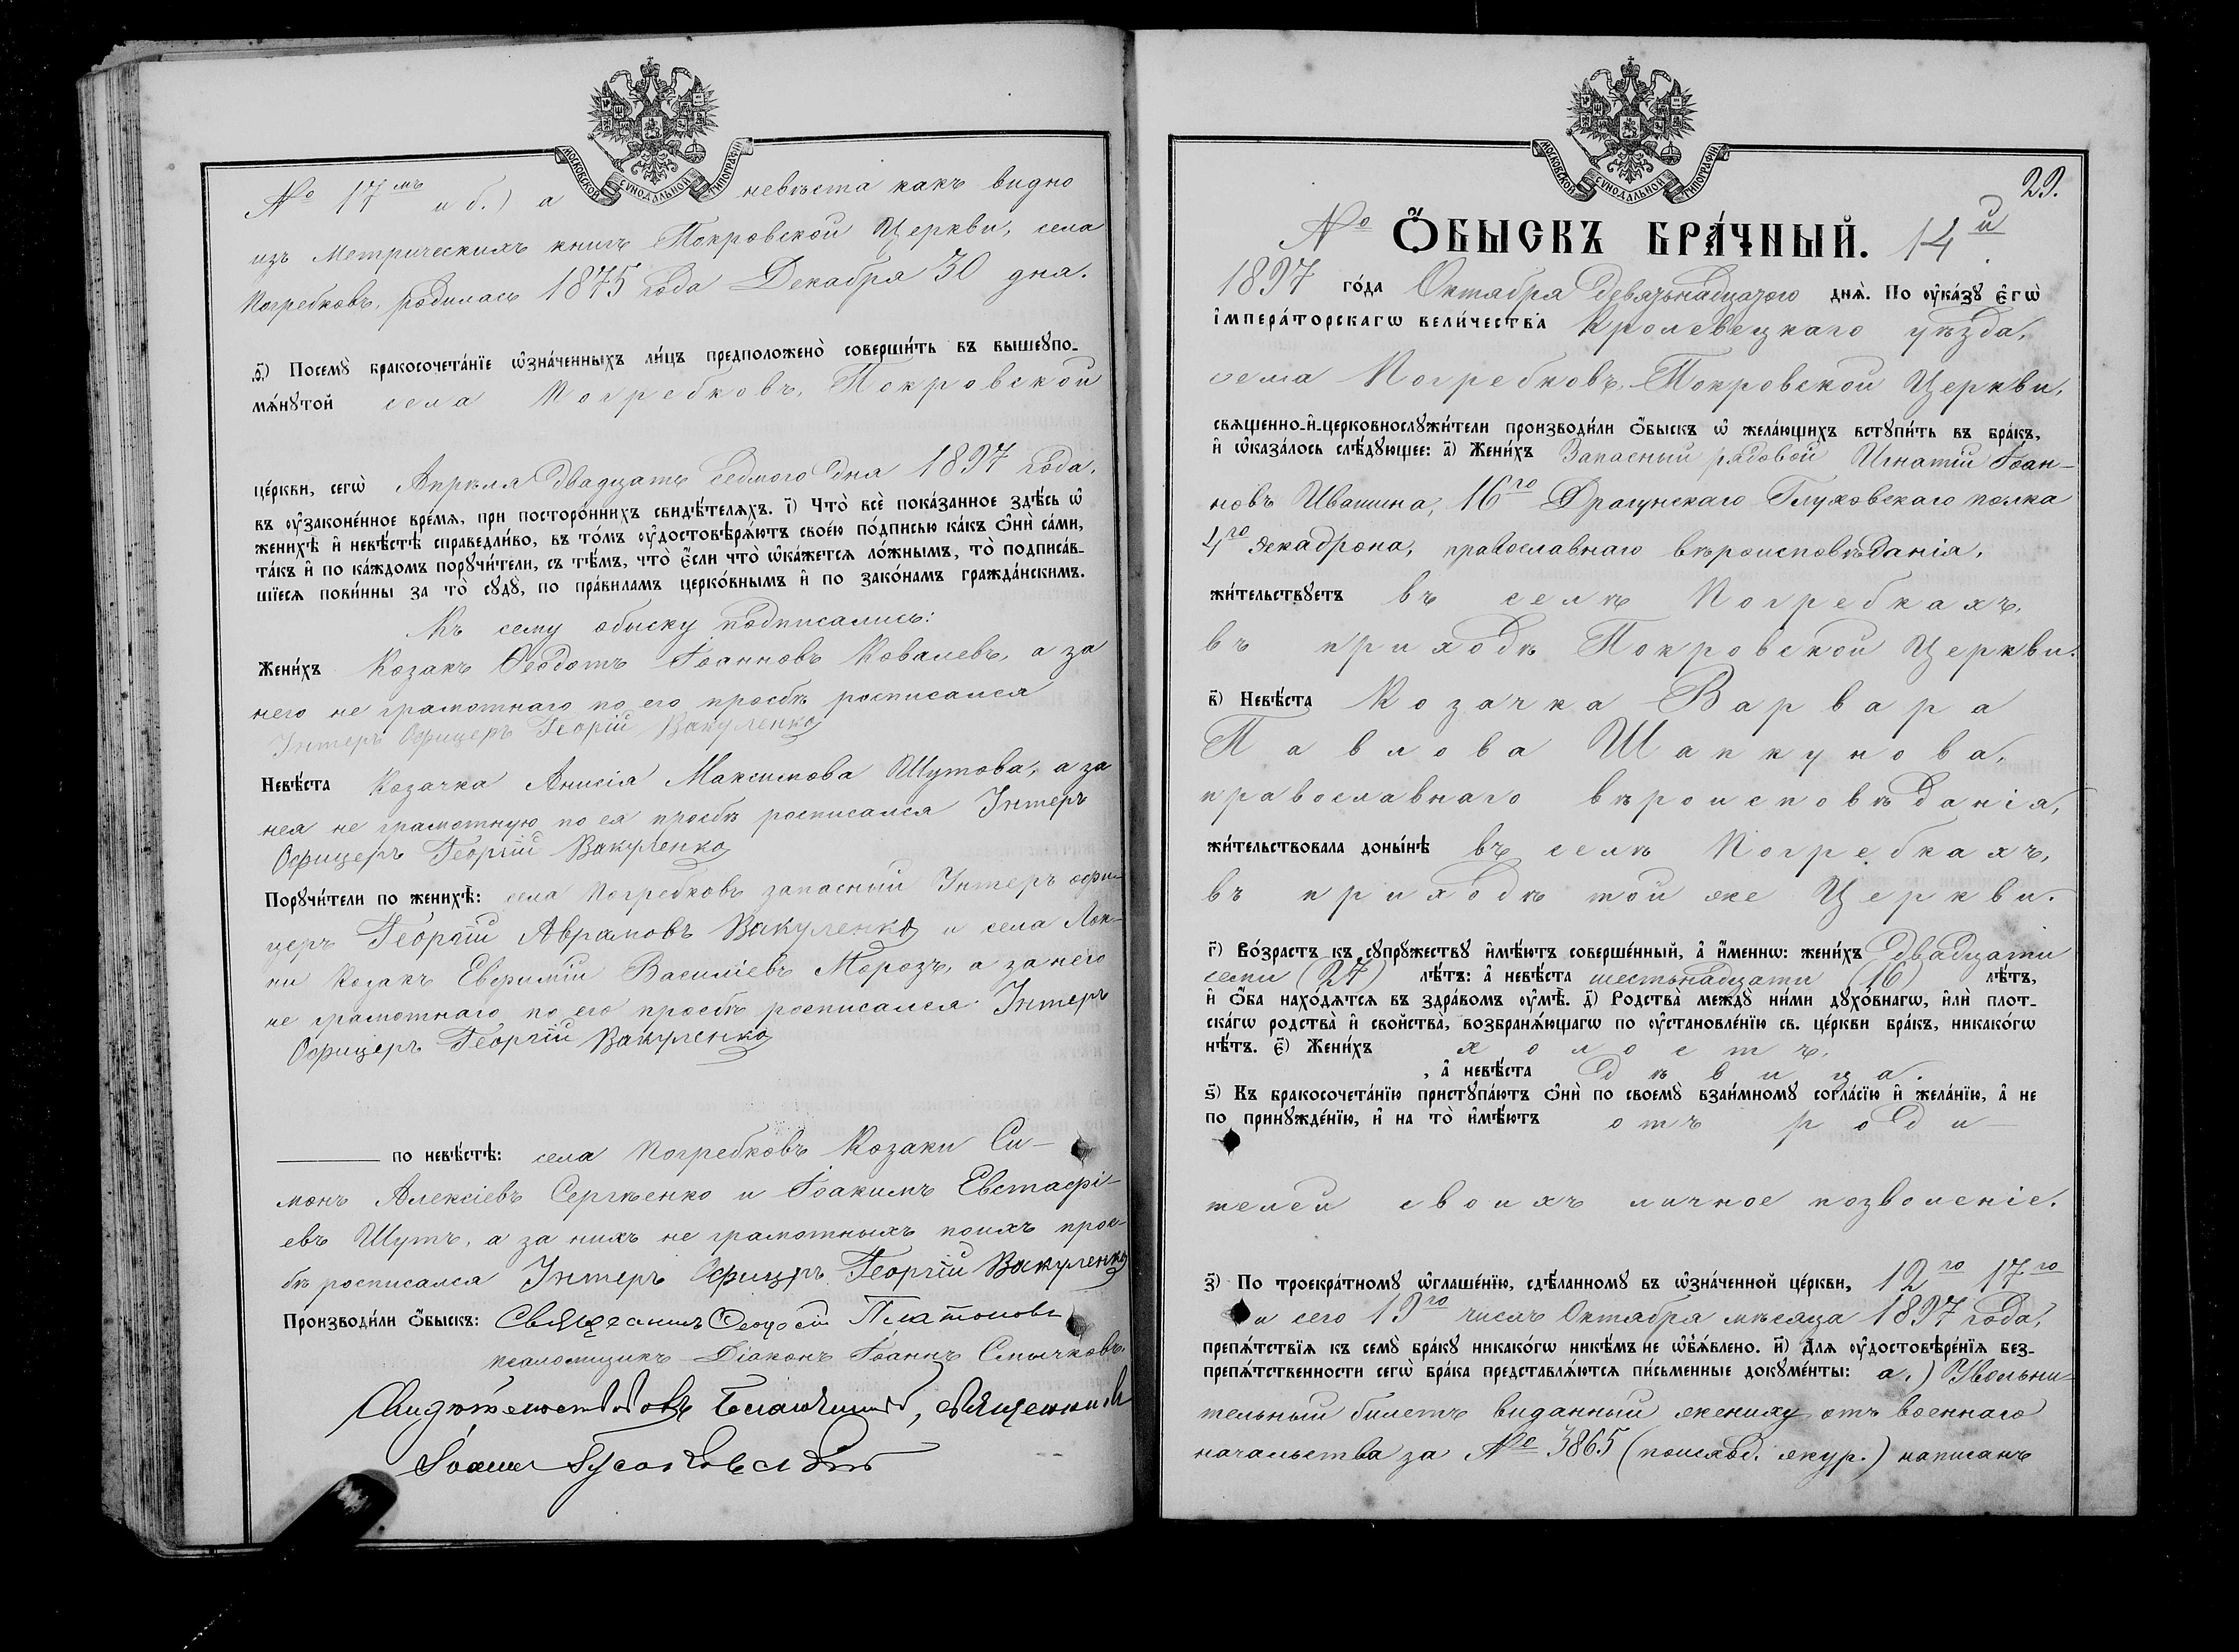 МОСКОВСКОЙ СѴНОДАЛЬНОЙ ТИПОГРАФІИ
№ 17мъ и б.) а невѣста какъ видно
изъ Метрическихъ книгъ Покровской Церкви, села
Погребковъ, родилась 1875 года Декабря 30 дня.
ѳ҃) Посемꙋ̀ бракосочета́нїе ѡ҆зна́ченныхъ ли́цъ предположено̀ соверши́ть въ вышеꙋпо-
мѧ́нꙋтой села Погребковъ, Покровской
це́ркви, сегѡ̀ Апрѣля двадцать седмого дня 1897 года,
въ ᲂу҆законе́нное вре́мѧ, при посторо́ннихъ свидѣ́телѧхъ. і҃) Что̀ всѐ пока́занное здѣ́сь ѡ҆
женихѣ̀ и҆ невѣ́стѣ справедли́во, въ то́мъ ᲂу҆достовѣрѧ́ютъ свое́ю по́дписью ка́къ ѻ҆нѝ са́ми,
та́къ и҆ по ка́ждомъ порꙋчи́тели, съ тѣ́мъ, что̀ є҆́сли что̀ ѡ҆ка́жется ло́жнымъ, то̀ подписа́в-
шїеся пови́нны за то̀ сꙋдꙋ̀, по пра́виламъ церко́внымъ и҆ по зако́намъ гражда́нскимъ.
Къ сему обыску подписались:
Жени́хъ Козакъ Ѳеодотъ Іоанновъ Ковалевъ, а за
него не грамотнаго по его просбѣ росписался
Інтеръ Офицеръ Георгій Вакуленко
Невѣ́ста Козачка Анисія Максимова Шутова, а за
нея не грамотную по ея просбѣ росписался Інтеръ
Офицеръ Георгій Вакуленко
Порꙋчи́тели по женихѣ̀: села Погребковъ запасний Інтеръ офи-
церъ Георгій Аврамовъ Вакуленко и села Лок-
ни Козакъ Евфимій Василіевъ Морозъ, а за него
не грамотнаго по его просбѣ росписался Інтеръ
Офицеръ Георгій Вакуленко
по невѣ́стѣ: села Погребковъ Козаки Си-
монъ Алексіевъ Сергѣенко и Іоакимъ Евстафі-
евъ Шутъ, а за нихъ не грамотныхъ поихъ прос-
бѣ росписался Інтеръ Офицеръ Георгій Вакуленко
Производи́ли ѻ҆́быскъ: Священникъ Ѳеодосій Платоновъ
псаломщикъ Діаконъ Іоаннъ Смычковъ.
Свидѣтельствовалъ Благочинный, Священникъ
Іоаннъ
МОСКОВСКОЙ СѴНОДАЛЬНОЙ ТИПОГРАФІИ
29.
№ Ѻ҆́БЫСКЪ БРА́ЧНЫЙ. 14й
1897 го́да Октября девятьнадцатого днѧ̀. По ᲂу҆ка́зꙋ Є҆гѡ̀
І҆мпера́торскагѡ вели́чества Кролевецкаго уѣзда,
села Погребковъ, Покровской Церкви,
свѧщенно-и҆-церковнослꙋжи́тели производи́ли ѻ҆́быскъ ѡ҆ жела́ющихъ встꙋпи́ть въ бра́къ,
и҆ ѡ҆каза́лось слѣ́дꙋющее: а҃) Жени́хъ Запасний рядовой Игнатій Іоан-
новъ Ивашина, 16го Драгунскаго Глуховскаго полка
4го Эекадрона, православнаго вѣроисповѣданія,
жи́тельствꙋетъ въ селѣ Погребкахъ,
въ приходѣ Покровской Церкви.
в҃) Невѣ́ста Козачка Варвара
Павлова Шапкунова,
православнаго вѣроисповѣданія,
жи́тельствовала доны́нѣ въ селѣ Погребкахъ,
въ приходѣ той же Церкви.
г҃) Во́зрастъ къ сꙋпрꙋжествꙋ и҆мѣ́ютъ соверше́нный, а҆ и҆́меннѡ: жени́хъ двадцати
семи (27) лѣ́тъ: а҆ невѣ́ста шестьнадцати (16) лѣ́тъ,
и҆ ѻ҆́ба нахо́дѧтсѧ въ здра́вомъ ᲂу҆мѣ̀. д҃) Родства̀ междꙋ̀ ни́ми дꙋхо́внагѡ, и҆лѝ плот-
ска́гѡ родства̀ и҆ свойства̀, возбранѧ́ющагѡ по ᲂу҆становле́нїю св. це́ркви бра́къ, никако́гѡ
нѣ́тъ. є҃) Жени́хъ холостъ,
, а҆ невѣ́ста дѣвица.
ѕ҃) Къ бракосочета́нїю пристꙋпа́ютъ ѻ҆нѝ по своемꙋ̀ взаи́мномꙋ согла́сїю и҆ жела́нїю, а҆ не
по принꙋжде́нїю, и҆ на то̀ и҆мѣ́ютъ отъ роди-
телей своихъ личное позволеніе.
з҃) По троекра́тномꙋ ѡ҆глаше́нїю, сдѣ́ланномꙋ въ ѡ҆зна́ченной це́ркви, 12го 17го
и сего 19го чиселъ Октября мѣсяца 1897 года,
препѧ́тствїѧ къ семꙋ̀ бра́кꙋ никако́гѡ никѣ́мъ не ѡ҆б̾ѧ́влено. и҃) Длѧ ᲂу҆достовѣре́нїѧ без-
препѧ́тственности сегѡ̀ бра́ка представлѧ́ютсѧ пи́сьменные докꙋме́нты: а.) Увольни-
тельный билетъ виданный жениху отъ военнаго
начальства за № 3865 (поисявд. якур.) написанъ